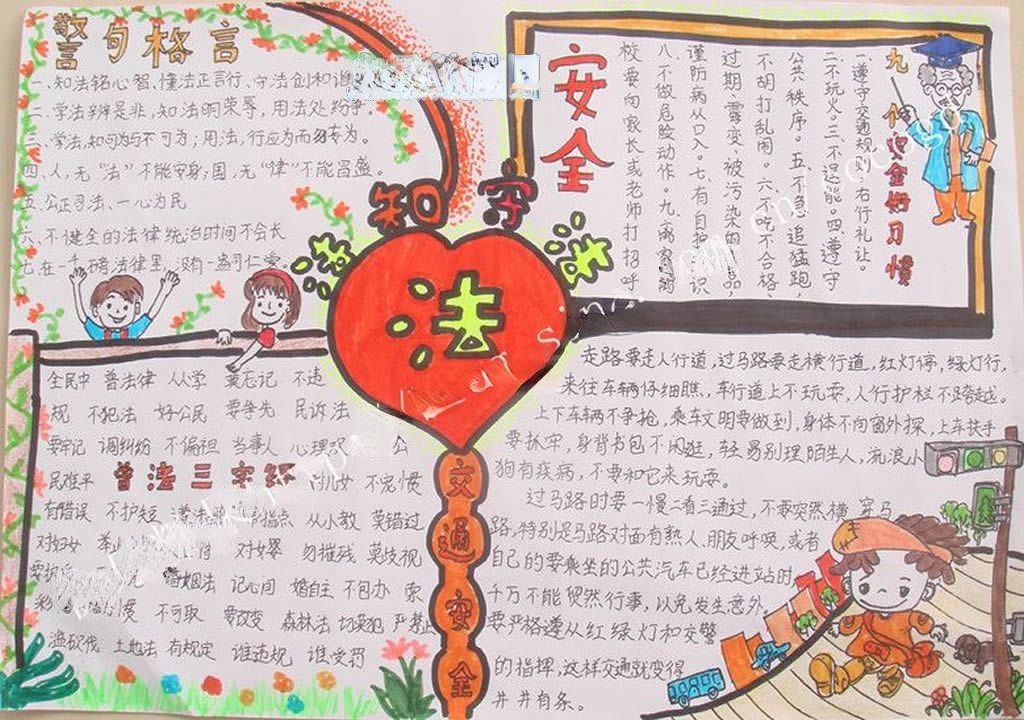 警句格言
一、知法铭心智、懂法正言行、守法创和谐
二、学法辨是非，知法明荣辱，用法处纷争。
三、学法，知可为与不可为；用法，行应为而勿妄为。
四、人，无“法”不能安身；国，无“律”不能昌盛。
五、公正司法、一心为民
六、不健全的法律统治时间不会长
七、在一千磅法律里，没有一盎司仁爱
知 守
法
安全
九个安全好习惯
一遵守交通规则，右行礼让。
二不玩火。三不逞能。四遵守
公共秩序。五不急追猛跑，
不胡打乱闹。六不吃不合格、
过期、霉变、被污染的食品，
谨防病从口入。七有自护意识
八、不做危险动作。九离家离
校要向家长或老师打招呼
全民中 普法律 从人学 莫忘记 不违
规 不犯法 好公民 要争先 民诉法
要牢记 调纠纷 不偏袒 当事人 心理跟 公
民难平
普法三字经
育儿女 不宠惯
有错误 不护短 指点 从小教 莫错过
对妇女 对女婴 勿摧残 莫歧视
婚姻法 记心间 婚自主 不包办 索
彩 惯 不可取 要改变 森林法 切莫犯 严禁止
滥砍伐 土地法 有规定 谁违规 谁受罚
交通安全
走路要走人行道，过马路要走横行道，红灯停，绿灯行，
来往车辆仔细瞧，车行道上不玩耍，人行护栏不跨越。
上下车辆不争抢，乘车文明要做到，身体不向窗外探，上车扶手
要抓牢，身背书包不闲逛，轻易别理陌生人，流浪小
狗有疾病，不要和它来玩耍。
过马路时要一慢二看三通过，不要突然横穿马
路，特别是马路对面有熟人、朋友呼唤，或者
自己的要乘坐的公共汽车已经进站时
千万不能贸然行事，以免发生意外。
要严格遵从红绿灯和交警
的指挥，这样交通就变得
井井有条。